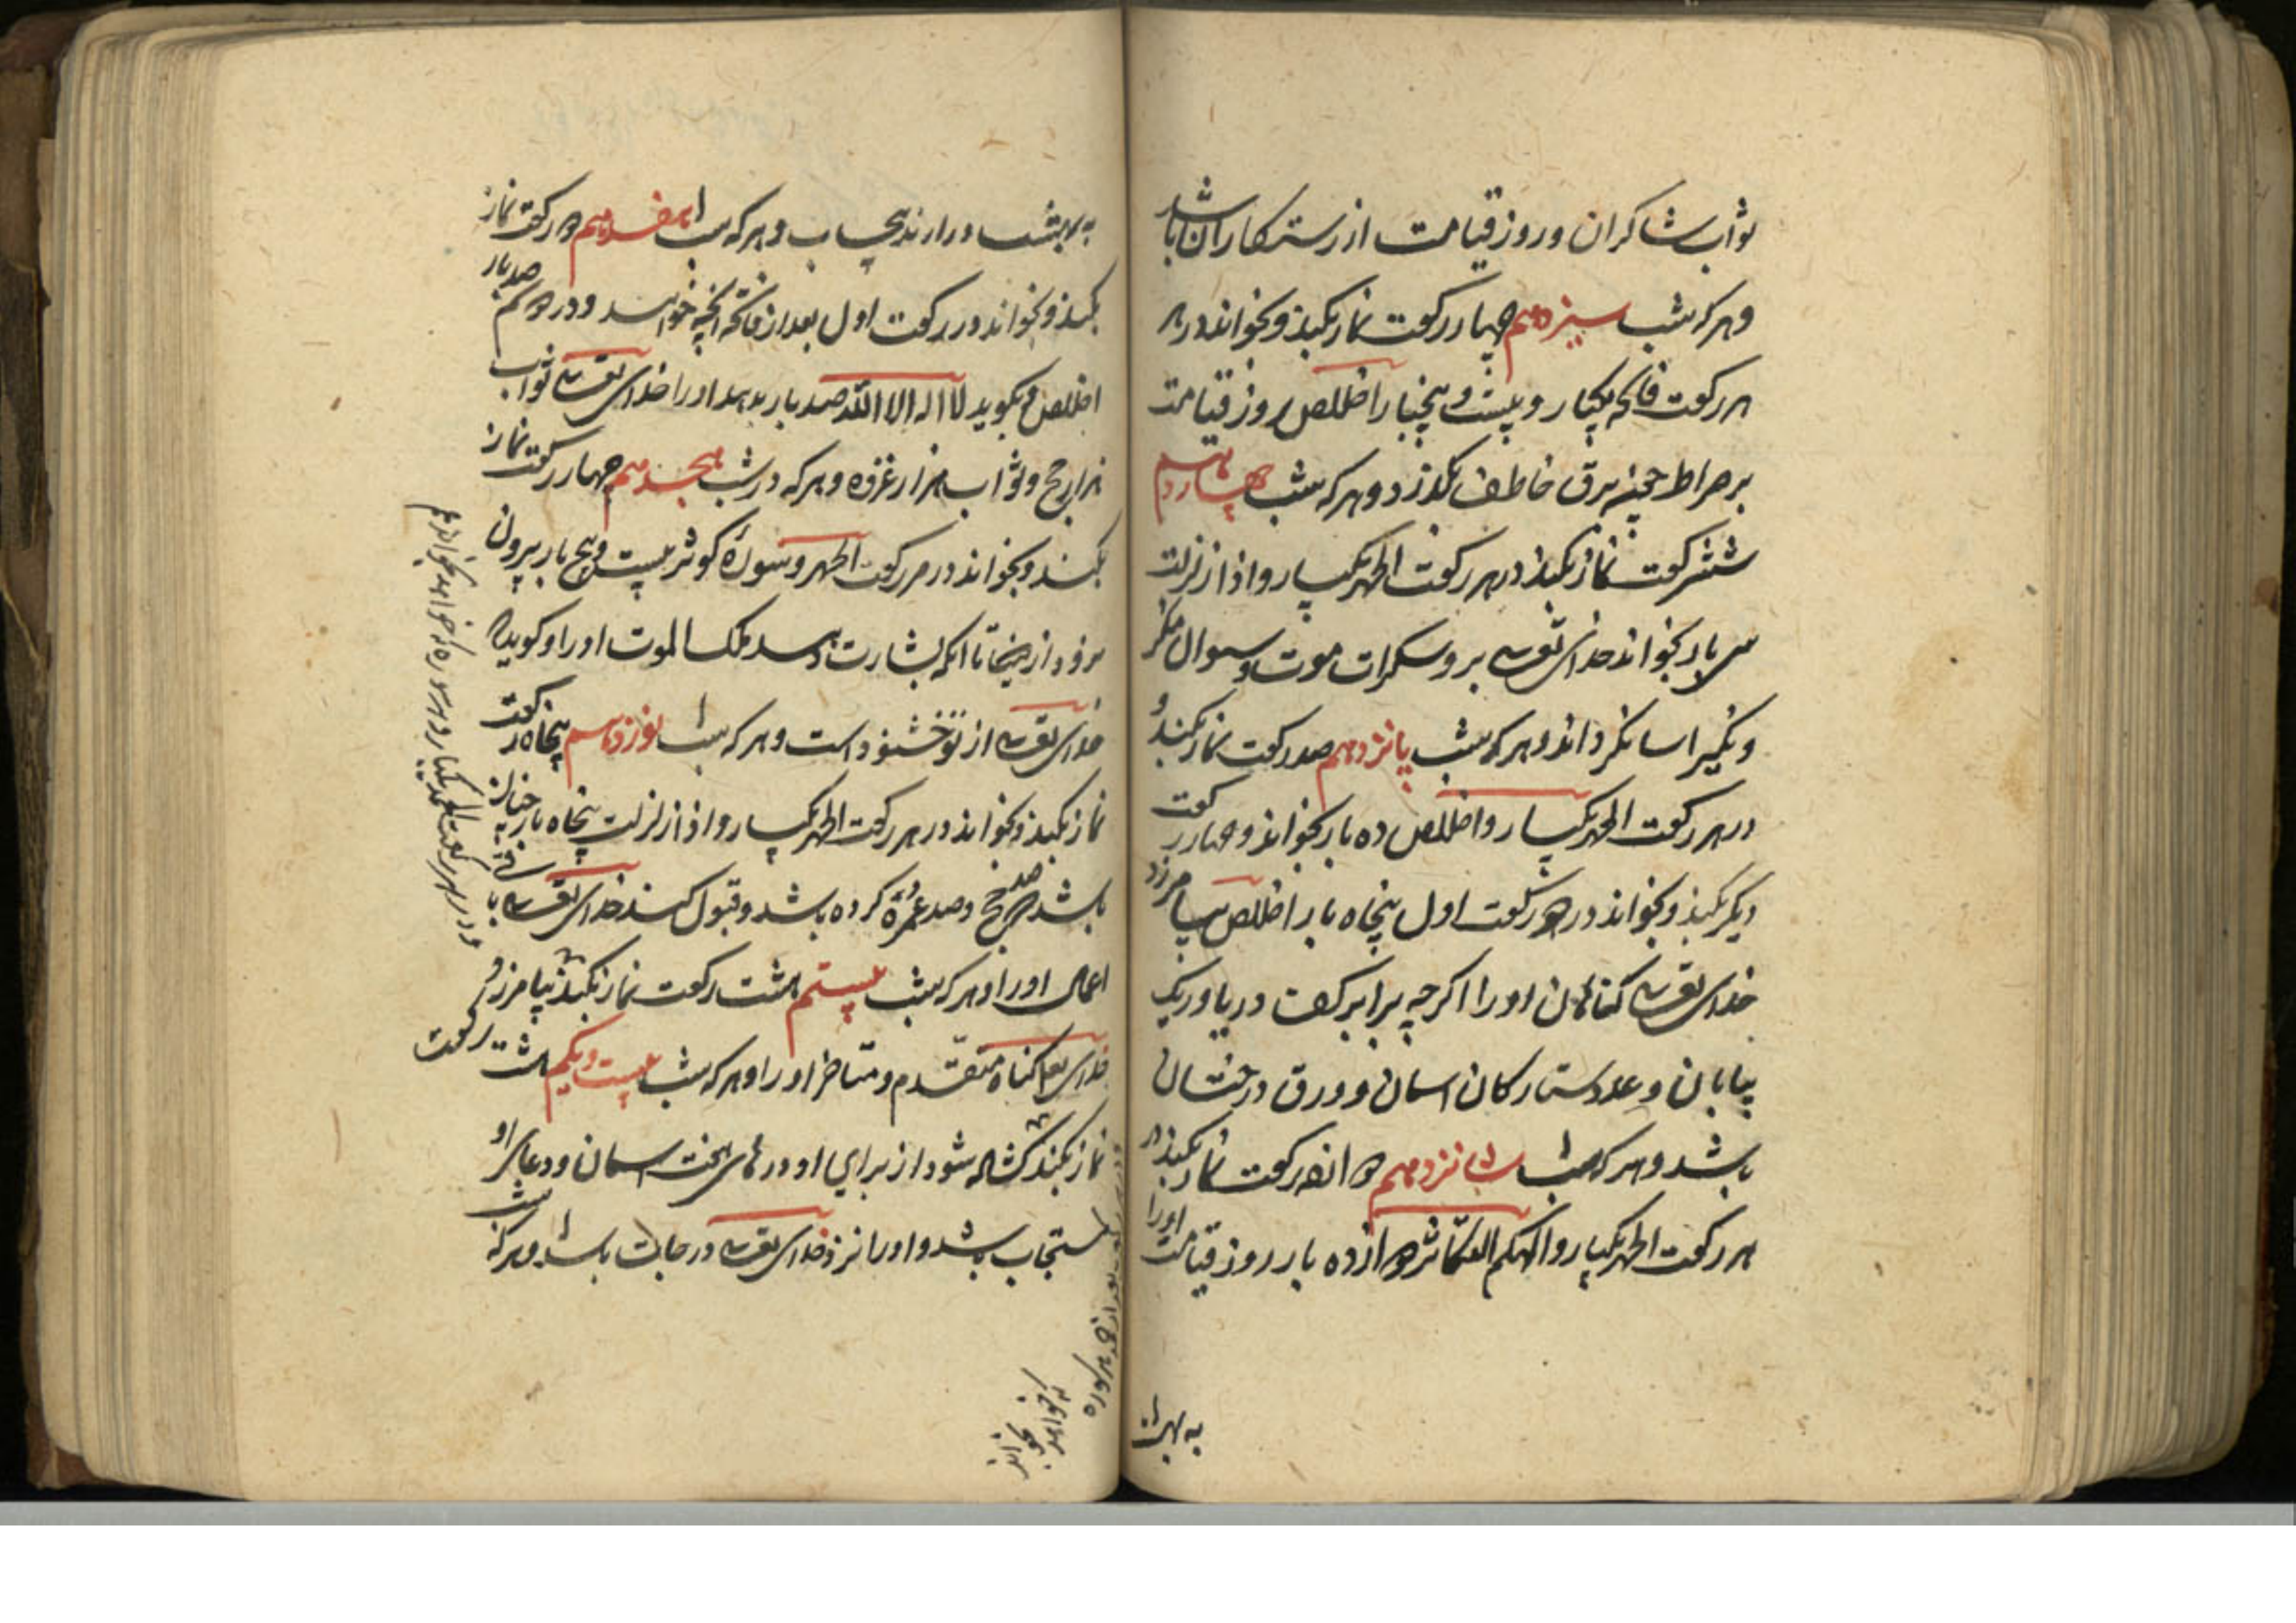 ثواب شاکران و روز قیامت از رستکاران باشد
و هر که شب سیزدهم چهار رکعت نماز بکند و بخواند در هر
هر رکعت فاتحه یکبار و بیست و پنجبار اخلاص روز قیامت
بر صراط چون برق خاطف بکذرد و هر که شب چهاردهم
شش رکعت نماز بکند در هر رکعت الحمد یکبار و اذا زلزلت
سی بار بخواند خدای تعالی برو سکرات موت و سوال منکر
و نکیر اسان کرداند و هر که شب پانزدهم صد رکعت نماز بکند و
در هر رکعت الحمد یکبار و اخلاص ده بار بخواند و چهار رکعت
دیکر بکند و بخواند در هر رکعت اول پنجاه بار اخلاص بیامرزد
خدای تعالی کناهان او را اکرچه برابر کف دریا و ریک
بیابان و عدد ستارکان اسمان و ورق درختان
باشد و هر که شب شانزدهم دوازده رکعت نماز بکند در
هر رکعت الحمد یکبار و الهکم التکاثر دوازده بار روز قیامت او را
به بهشت
به بهشت در ارند بی حساب و هر که شب هفدهم دو رکعت نماز
بکند و بخواند در رکعت اول بعد از فاتحه انچه خواهد و در دوم صد بار
اخلاص و بکوید لا اله الا الله صد بار بدهد او را خدای تعالی ثواب
هزار حج و ثواب هزار غزوه و هر که در شب هجدهم چهار رکعت نماز
بکند و بخواند در هر رکعت الحمد و سورة کوثر بیست و پنج بار بیرون
نرود از دنیا تا انکه بشارت دهد ملک الموت او را و کوید که
خدای تعالی از تو خشنود است و هر که شب نوزدهم پنجاه رکعت
نماز بکند و بخواند در هر رکعت الحمد یکبار و اذا زلزلت پنجاه بار چنان
باشد صد حج و صد عمره کرده باشد و قبول کند خدای تعالی باقی
اعمال او را و هر که شب بیستم هشت رکعت نماز بکند بیامرزد
خدای تعالی کناه متقدم و متاخر او را و هر که شب بیست و یکم هشت رکعت
نماز بکند کشاده شود از برای او درهای هفت اسمان و دعای او
مستجاب باشد و او را نزد خدای تعالی درجات باشد و هر که شب
و در هر رکعت الحمد یکبار و هر سوره که خواهد بخواند
بعد از حمد هر سوره
که خواهد
بخواند